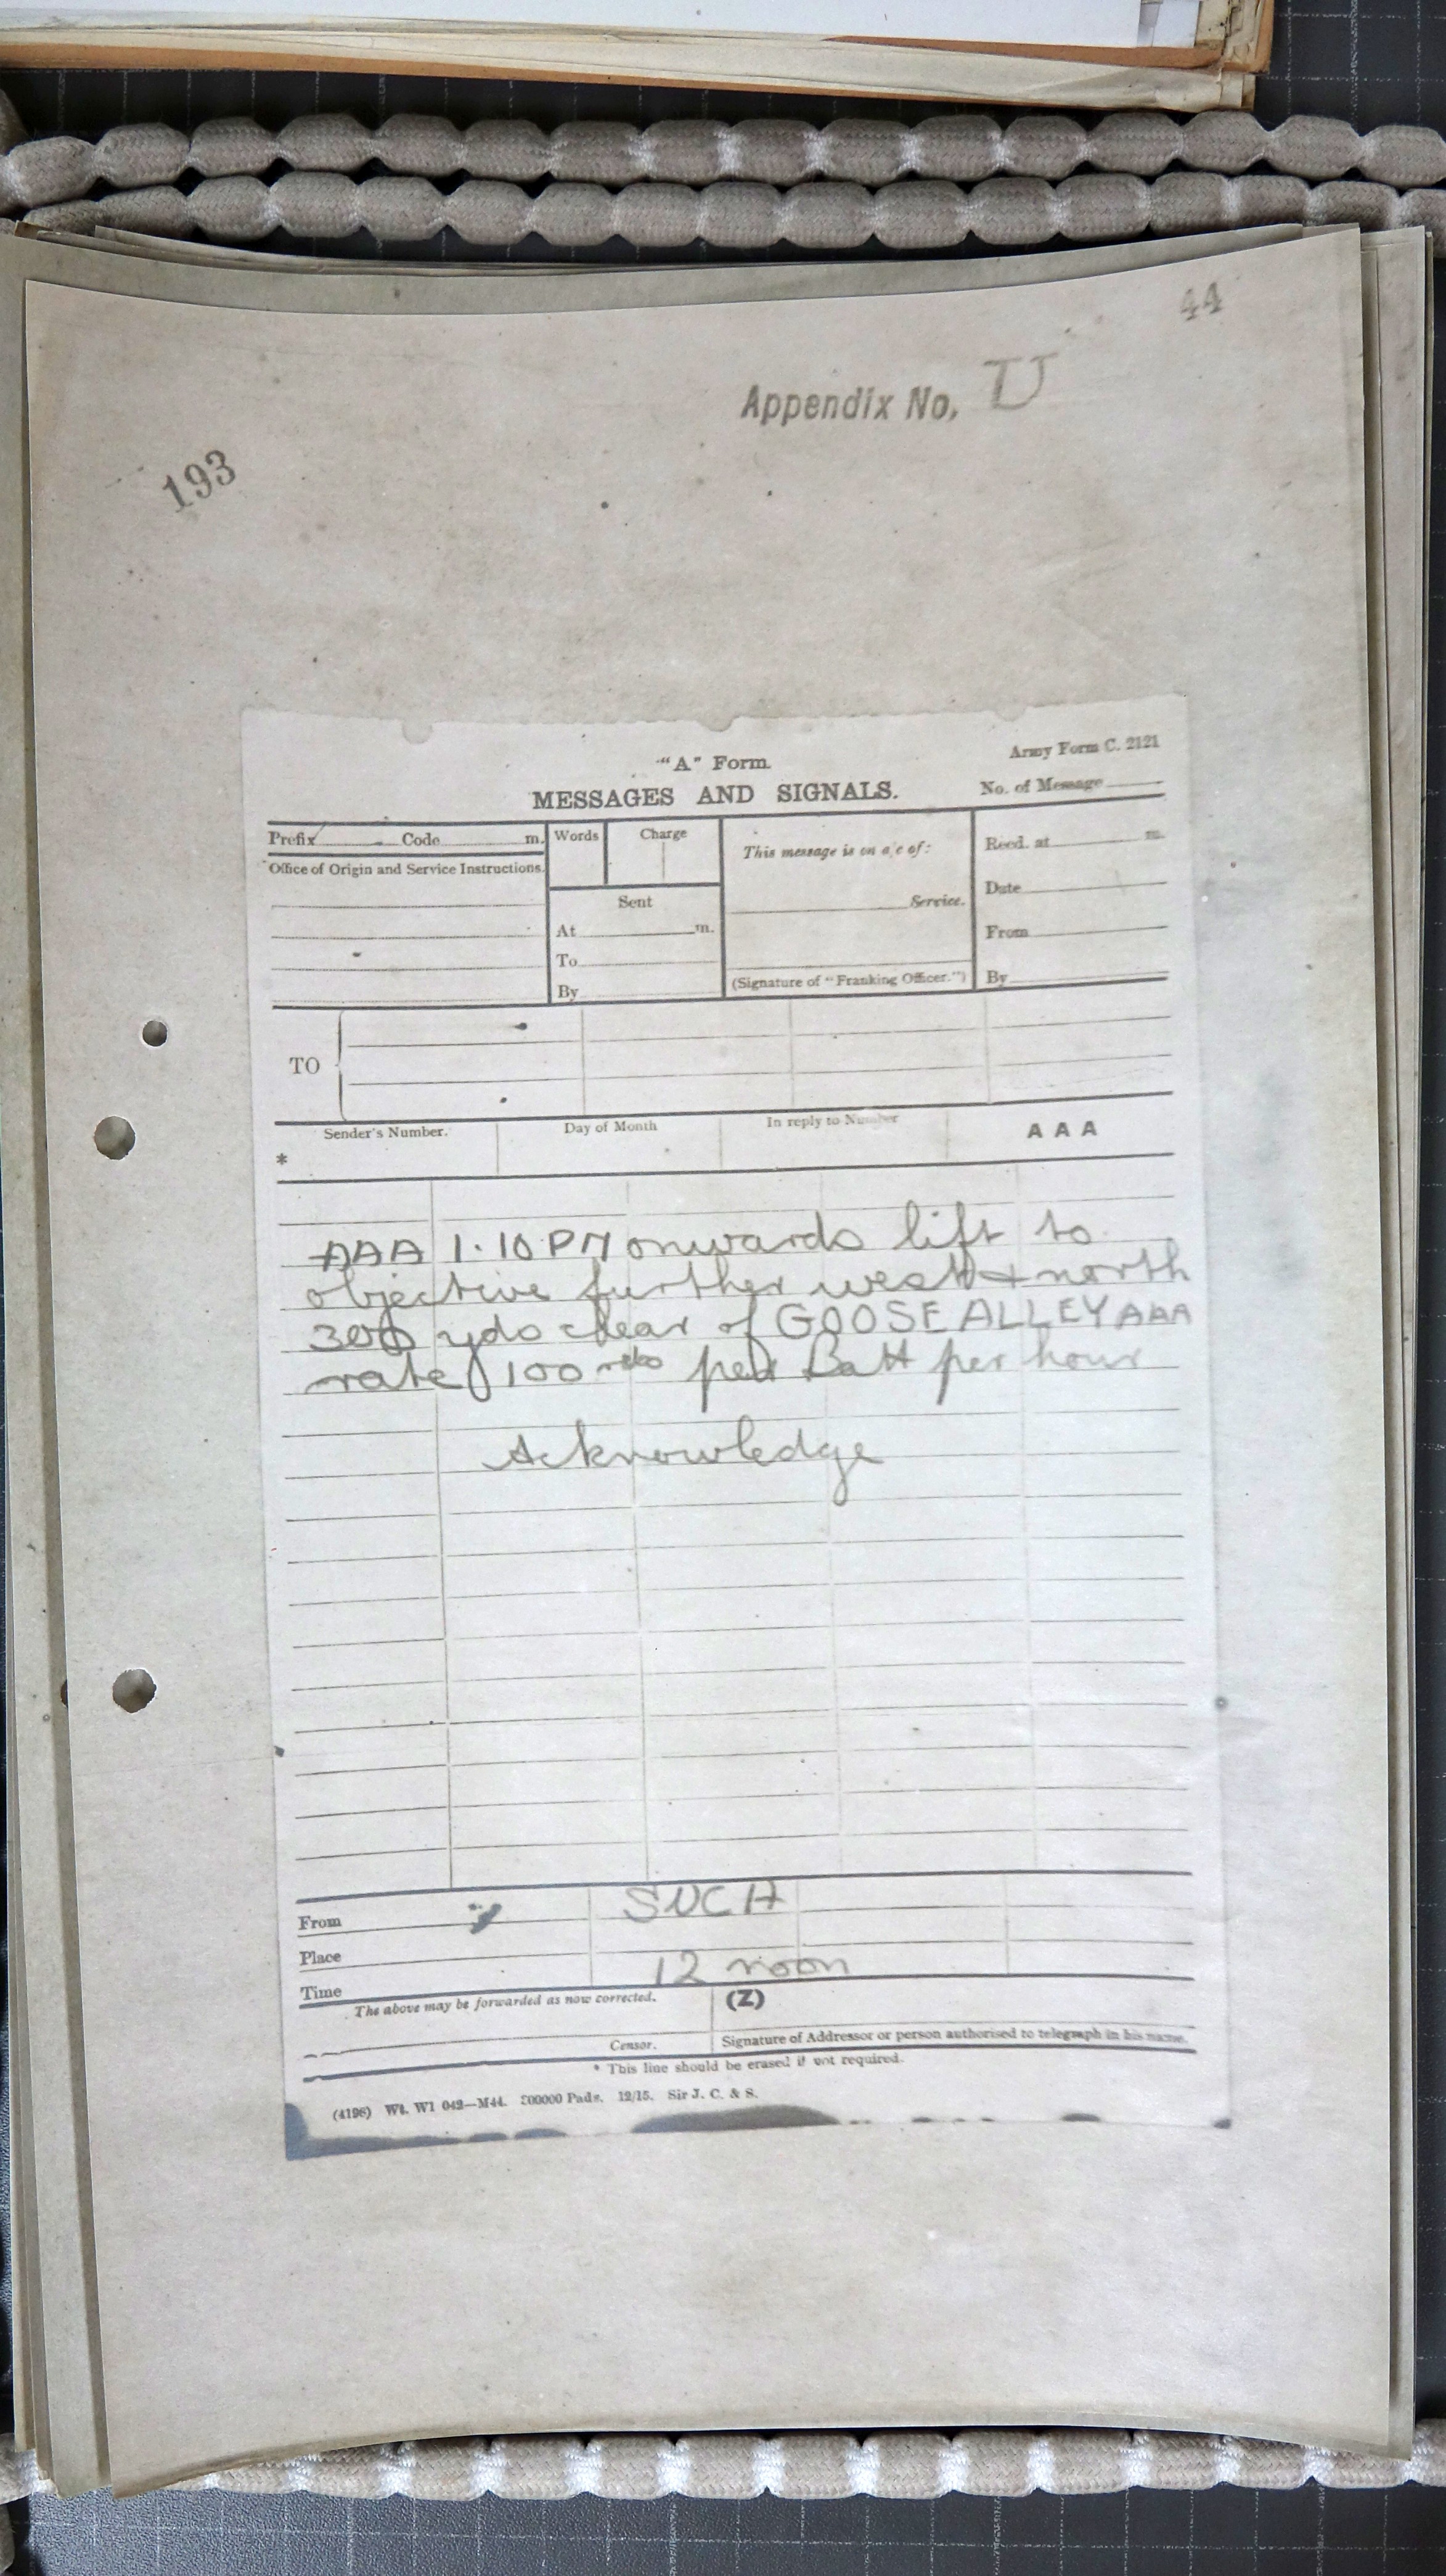 44
Appendix No. U
193
"A" Form.
Army Form C. 2121
MESSAGES AND SIGNALS.
No. of Message
Prefix Code m.
Words Charge
This message is on a/c of:
Recd. at m.
Office of Origin and Service Instructions.
Sent
Date
Service.
At m.
From
To
(Signature of "Franking Officer.")
By
By
TO
Sender's Number.
Day of Month
In reply to Number
A A A
*
AAA 1.10 PM onwards lift to
objective further west & north
300 yds clear of GOOSE ALLEY AAA
rate 100 rds per Batt per hour
Acknowledge
From SUCH
Place
Time 12 noon
The above may be forwarded as now corrected.
(Z)
Censor.
Signature of Addressor or person authorised to telegraph in his name.
* This line should be erased if not required.
(4198) Wt. W1 042—M44. 300000 Pads. 12/15. Sir J. C. & S.